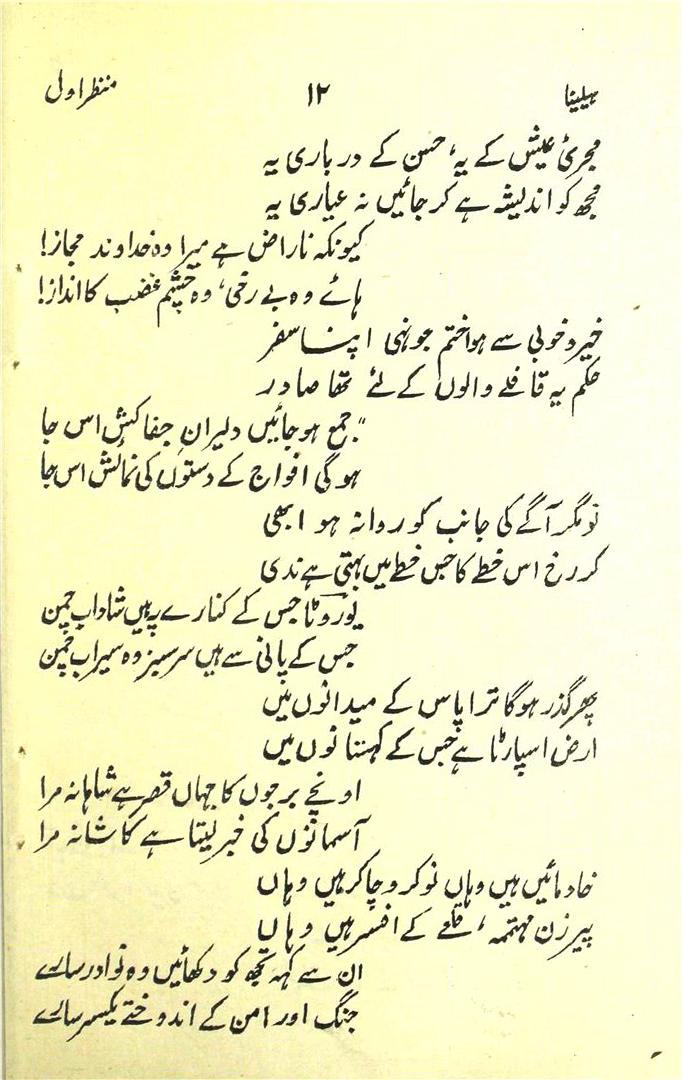 ہیلینا ۱۲ منظر اول
مجرئ عیش کے یہ، حسن کے درباری یہ
مجھ کو اندیشہ ہے کر جائیں نہ عیاری یہ
کیونکہ ناراض ہے میرا وہ خداوند مجاز!
ہائے وہ بے رخی، وہ چشم غضب کا انداز!
خیر و خوبی سے ہوا ختم جونہی اپنا سفر
حکم یہ قافلے والوں کے لئے تھا صادر
"جمع ہو جائیں دلیرانِ جفاکش اس جا
ہوگی افواج کے دستوں کی نمائش اس جا
تو مگر آگے کی جانب کو روانہ ہو ابھی
کر رخ اس خطے کا جس خطے میں بہتی ہے ندی
یوروٹا جس کے کنارے پہ ہیں شاداب چمن
جس کے پانی سے ہیں سرسبز وہ سیراب چمن
پھر گذر ہوگا ترا پاس کے میدانوں میں
ارض اسپارٹا ہے جس کے کہستانوں میں
اونچے برجوں کا جہاں قصر ہے شاہانہ مرا
آسمانوں کی خبر لیتا ہے کاشانہ مرا
خادمائیں ہیں وہاں نوکر و چاکر ہیں وہاں
پیر زن مہتممہ، قلعے کے افسر ہیں وہاں
ان سے کہہ تجھ کو دکھائیں وہ نوادر سارے
جنگ اور امن کے اندوختے یکسر سارے